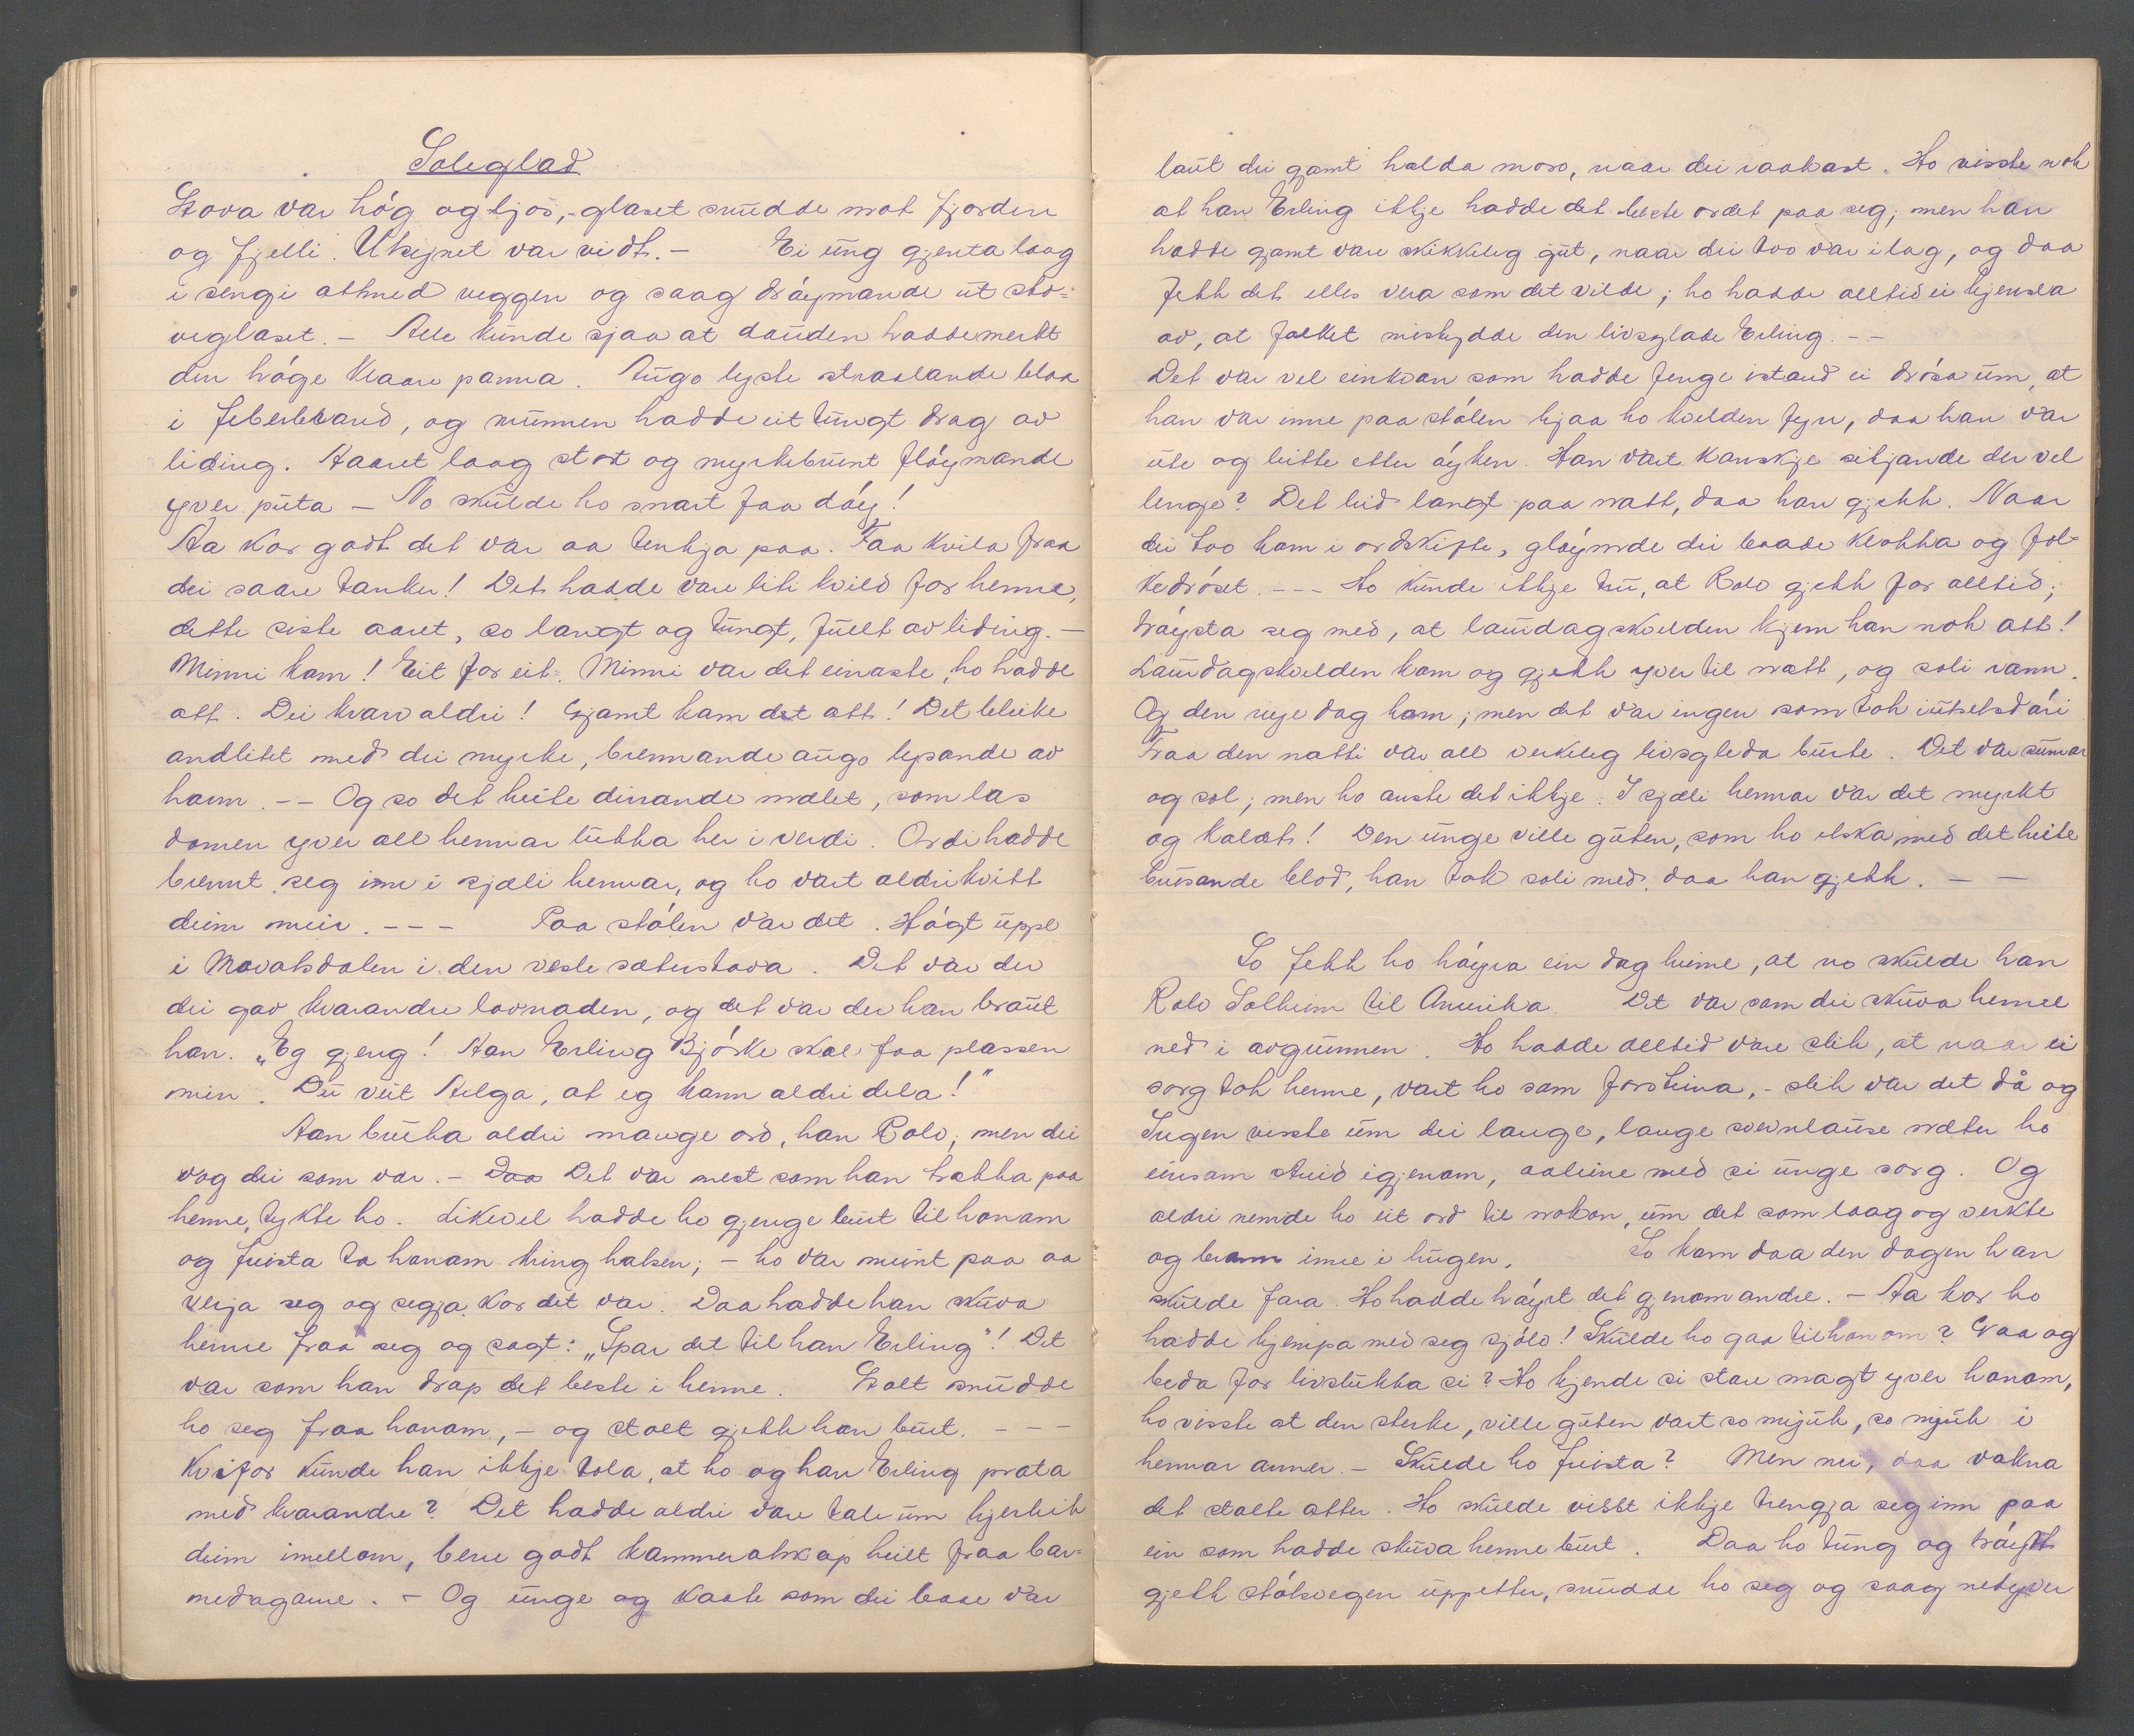 Soleglad
Stova var høg og ljos, - glaset snudde mot fjorden
og fjelli. Utsynet var vidt. - Ei ung gjenta laag
i sengi attmed veggen og saag drøymande ut sto-
veglaset. - Alle kunde sjaa at dauden hadde merkt
den høge klaare panna. Augo lyste straalande blaa
i feberbrand, og munnen hadde eit tungt drag av
liding. Haaret laag stort og myrkebrunt fløymande
yver puta - No skulde ho snart faa døy!
Aa kor godt det var aa tenkja paa. Faa kvila fraa
dei saare tankar! Det hadde vore liti kvild for henne,
dette siste aaret, so langt og tungt, fullt av liding. -
Minni kom! Eit for eit. Minni var det einaste, ho hadde
att. Dei kvarv aldri! Gjamt kom det att! Det bleike
andlitet med dei myrke, brennande augo lysande av
harm. -- Og so det heite dirrande mælet, som las
domen yver all hennar lukka her i verdi. Ordi hadde
brennt seg inn i sjæli hennar, og ho vart aldri kvitt
deim meir. --- Paa stølen var det. Høgt uppe
i Moratsdalen i den vesle sæterstova. Det var der
dei gav kvarandre lovnaden, og det var der han braut
han. „Eg gjeng! Han Erling Bjørke skal faa plassen
min. Du veit Helga, at eg kann aldri dela!"
Han bruka aldri mange ord, han Rolv; men dei
vog dei som var. - Daa Det var mest som han trakka paa
henne, tykte ho. Likevel hadde ho gjenge burt til honom
og freista ta honom kring halsen; - ho var meint paa aa
verja seg og segja kor det var. Daa hadde han skuva
henne fraa seg og sagt: „Spar det til han Erling"! Det
var som han drap det beste i henne. Stolt snudde
ho seg fraa honom, - og stolt gjekk han burt. ---
Kvifor kunde han ikkje tola, at ho og han Erling prata
med kvarandre? Det hadde aldri vore tale um kjerleik
deim imellom, berre godt kammeratskap heilt fraa bar-
nedagarne. - Og unge og kaate som dei baae var
laut dei gjamt halda moro, naar dei raakast. Ho visste nok
at han Erling ikkje hadde det beste ordet paa seg; men han
hadde gjamt vore skikkeleg gut, naar dei tvo var ilag, og daa
fekk det elles vera som det vilde; ho hadde alltid ei kjensla
av, at folket mistydde den livsglade Erling. --
Det var vel einkvan som hadde fenge istand ei drøsa um, at
han var inne paa stølen hjaa ho kvelden fyrr, daa han var
ute og leitte etter øyken. Han vart kanskje sitjande der vel
lenge? Det leid langt paa natt, daa han gjekk. Naar
dei tvo kom i ordskifte, gløymde dei baade klokka og fol-
kedrøset. --- Ho kunde ikkje tru, at Rolv gjekk for alltid;
trøysta seg med, at laurdagskvelden kjem han nok att!
Laurdagskvelden kom og gjekk yver til natt, og soli rann.
Og den nye dag kom; men det var ingen som tok i utselsdøri
Fraa den natti var all verkeleg livsgleda burte. Det var sumar
og sol; men ho anste det ikkje. I sjæli hennar var det myrkt
og kaldt! Den unge ville guten, som ho elska med det heite
brusande blod, han tok soli med, daa han gjekk. - -
So fekk ho høyra ein dag heime, at no skulde han
Rolv Solheim til Amerika. Det var som dei skuva henne
ned i avgrunnen. Ho hadde alltid vore slik, at naar ei
sorg tok henne, vart ho som forsteina, - slik var det då og
Ingen visste um dei lange, lange svevnlause næter ho
einsam streid igjenom, aaleine med si unge sorg. Og
aldri nemde ho eit ord til nokon, um det som laag og verkte
og brann inne i hugen. So kom daa den dagen han
skulde fara. Ho hadde høyrt det gjenom andre. - Aa kor ho
hadde kjempa med seg sjølv! Skulde ho gaa til honom? Gaa og
beda for livslukka si? Ho kjende si store magt yver honom,
ho visste at den sterke, ville guten vart so mjuk, so mjuk i
hennar armer. - Skulde ho freista? Men nei, daa vakna
det stolte atter. Ho skulde visst ikkje trengja seg inn paa
ein som hadde skuva henne burt. Daa ho tung og trøytt
gjekk stølsvegen uppetter, snudde ho seg og saag nedyver